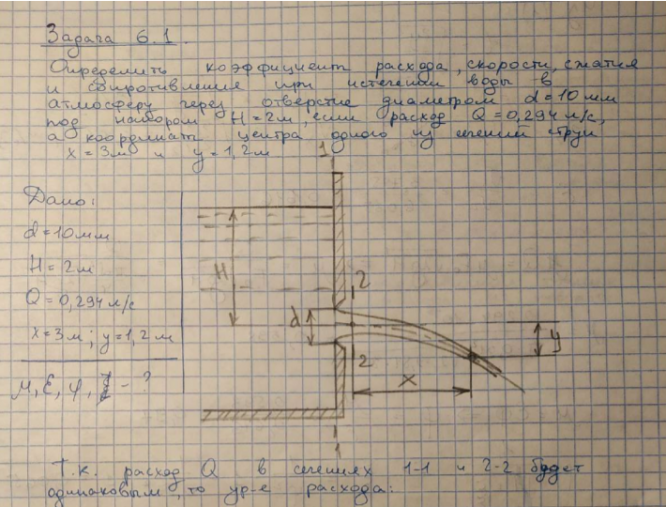 Задача 6.1.
Определить коэффициент расхода, скорости, сжатия
и сопротивления при истечении воды в
атмосферу через отверстие диаметром d=10 мм
под напором H=2м, если расход Q=0,294 л/с,
а координаты центра одного из сечений струи
x=3м и y=1,2м
Дано:
d=10мм
H=2м
Q=0,294 л/с
x=3м; y=1,2м
μ, ε, φ, ξ - ?
1
H
d
2
2
x
y
1
Т.к. расход Q в сечениях 1-1 и 2-2 будет
одинаковым, то ур-е расхода: